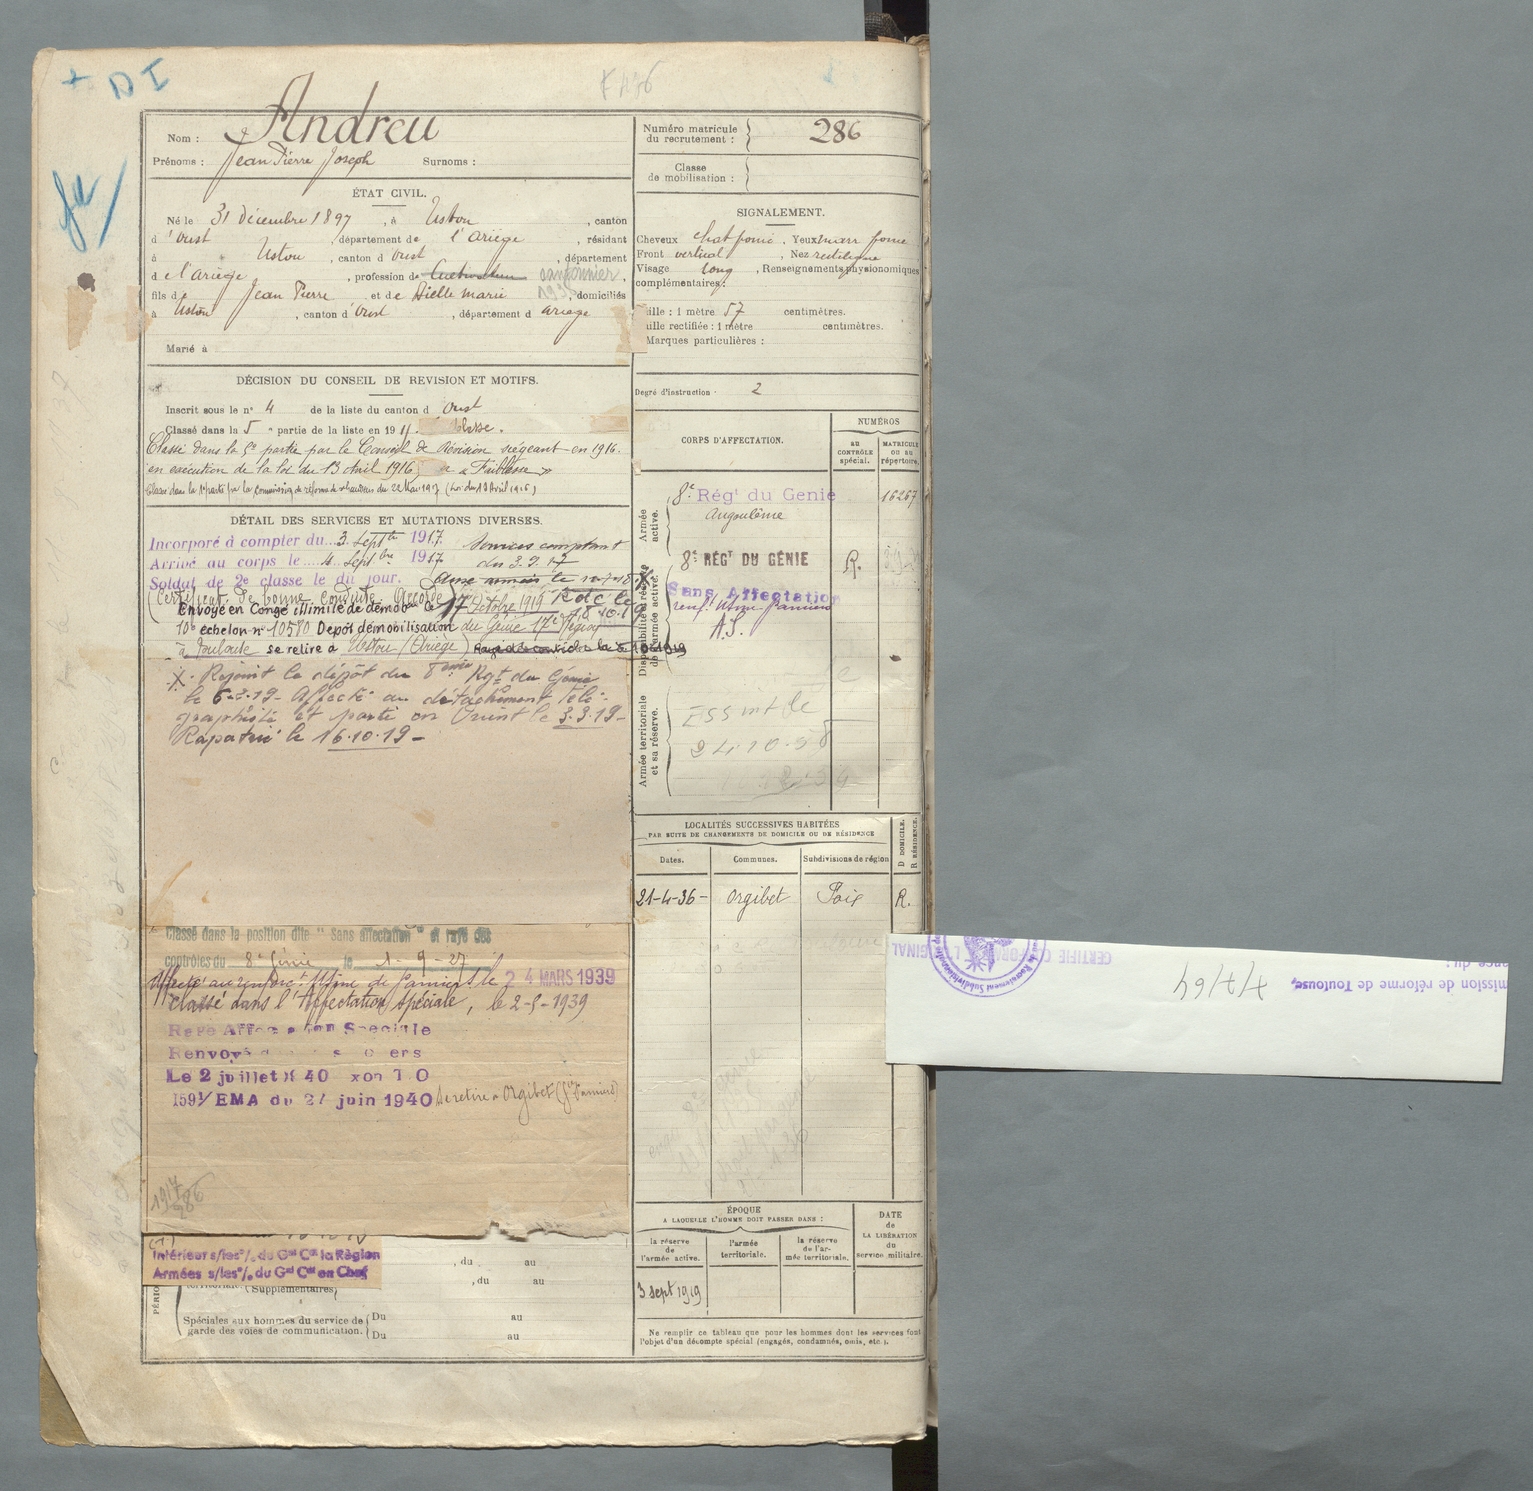 + D I
Nom : Andreu
Prénoms : Jean Pierre Joseph Surnoms :
ÉTAT CIVIL.
Né le 31 décembre 1897, à Ustou, canton
d'Oust, département de l'Ariège, résidant
à Ustou, canton d'Oust, département
de l'Ariège, profession de Cultivateur cantonnier,
fils de Jean Pierre et de Dielle Marie 1936, domiciliés
à Ustou, canton d'Oust, département d Ariège
Marié à
DÉCISION DU CONSEIL DE REVISION ET MOTIFS.
Inscrit sous le n° 4 de la liste du canton d Oust
Classé dans la 5e partie de la liste en 191
Classé dans la 5e partie par le Conseil de Révision siégeant en 1916.
en exécution de la loi du 13 Avril 1916 « Faiblesse »
Classé dans la 1e partie par la Commission de réforme de du 22 Mai 1917 (Loi du 13 Avril 1916)
DÉTAIL DES SERVICES ET MUTATIONS DIVERSES.
Incorporé à compter du 3 Septbre 1917. Services comptant
Arrivé au corps le 4 Septbre 1917. du 3.9.17
Soldat de 2e classe le dit jour.
(Certificat de bonne conduite Accordé)
Envoyé en Congé illimité de démobon le 17 Octobre 1919
10e échelon n° 10580 Dépôt démobilisation du Génie 17e Région
à Toulouse se retire à Ustou (Ariège)
X. Rejoint le dépôt du 8ème Rgt du Génie
le 6.2.19 - Affecté au détachement Télé-
graphiste et parti en Orient le 3.3.19 -
Rapatrié le 16.10.19 -
Classé dans la position dite "Sans affectation" et rayé des
contrôles du 8e Génie le 1-9-27
Affecté au renforc.t Usine de Pamiers le 24 MARS 1939
Classé dans l'Affectation Spéciale, le 2-5-1939
Rayé Affectation Spéciale
Renvoyé
Le 2 juillet 1940
1591/EMA du 27 juin 1940 se retire à Orgibet
1917
286
Intérieur s/les o/. du Gal Ct la Région
Armées s/les o/. du Gal Ct en Chef
territoriale. (Supplémentaires) , du au
, du au
Spéciales aux hommes du service de garde des voies de communication. Du au
Du au
Numéro matricule du recrutement : 286
Classe de mobilisation :
SIGNALEMENT.
Cheveux chat foncé, Yeux marr foncé
Front vertical, Nez rectiligne
Visage long, Renseignements physionomiques
complémentaires:
Taille : 1 mètre 57 centimètres.
Taille rectifiée : 1 mètre centimètres.
Marques particulières :
Degré d'instruction : 2
CORPS D'AFFECTATION.
NUMÉROS
AU CONTRÔLE spécial.
MATRICULE OU AU répertoire.
Armée active.
8e Régt du Génie 16267
Angoulême
Disponibilité et réserve de l'armée active.
8e RÉGT DU GÉNIE R.
Sans Affectation
renft Usine Pamiers
A.S.
Armée territoriale et sa réserve.
LOCALITÉS SUCCESSIVES HABITÉES
PAR SUITE DE CHANGEMENTS DE DOMICILE OU DE RÉSIDENCE
D DOMICILE.
R RÉSIDENCE.
Dates. Communes. Subdivisions de région
21-4-36- Orgibet Foix R.
ÉPOQUE
A LAQUELLE L'HOMME DOIT PASSER DANS :
la réserve de l'armée active.
l'armée territoriale.
la réserve de l'armée territoriale.
DATE de LA LIBÉRATION du service militaire.
3 sept 1919
Ne remplir ce tableau que pour les hommes dont les services font
l'objet d'un décompte spécial (engagés, condamnés, omis, etc.).
mission de réforme de Toulouse,
7/7/64
CERTIFIÉ CONFORME A L'ORIGINAL